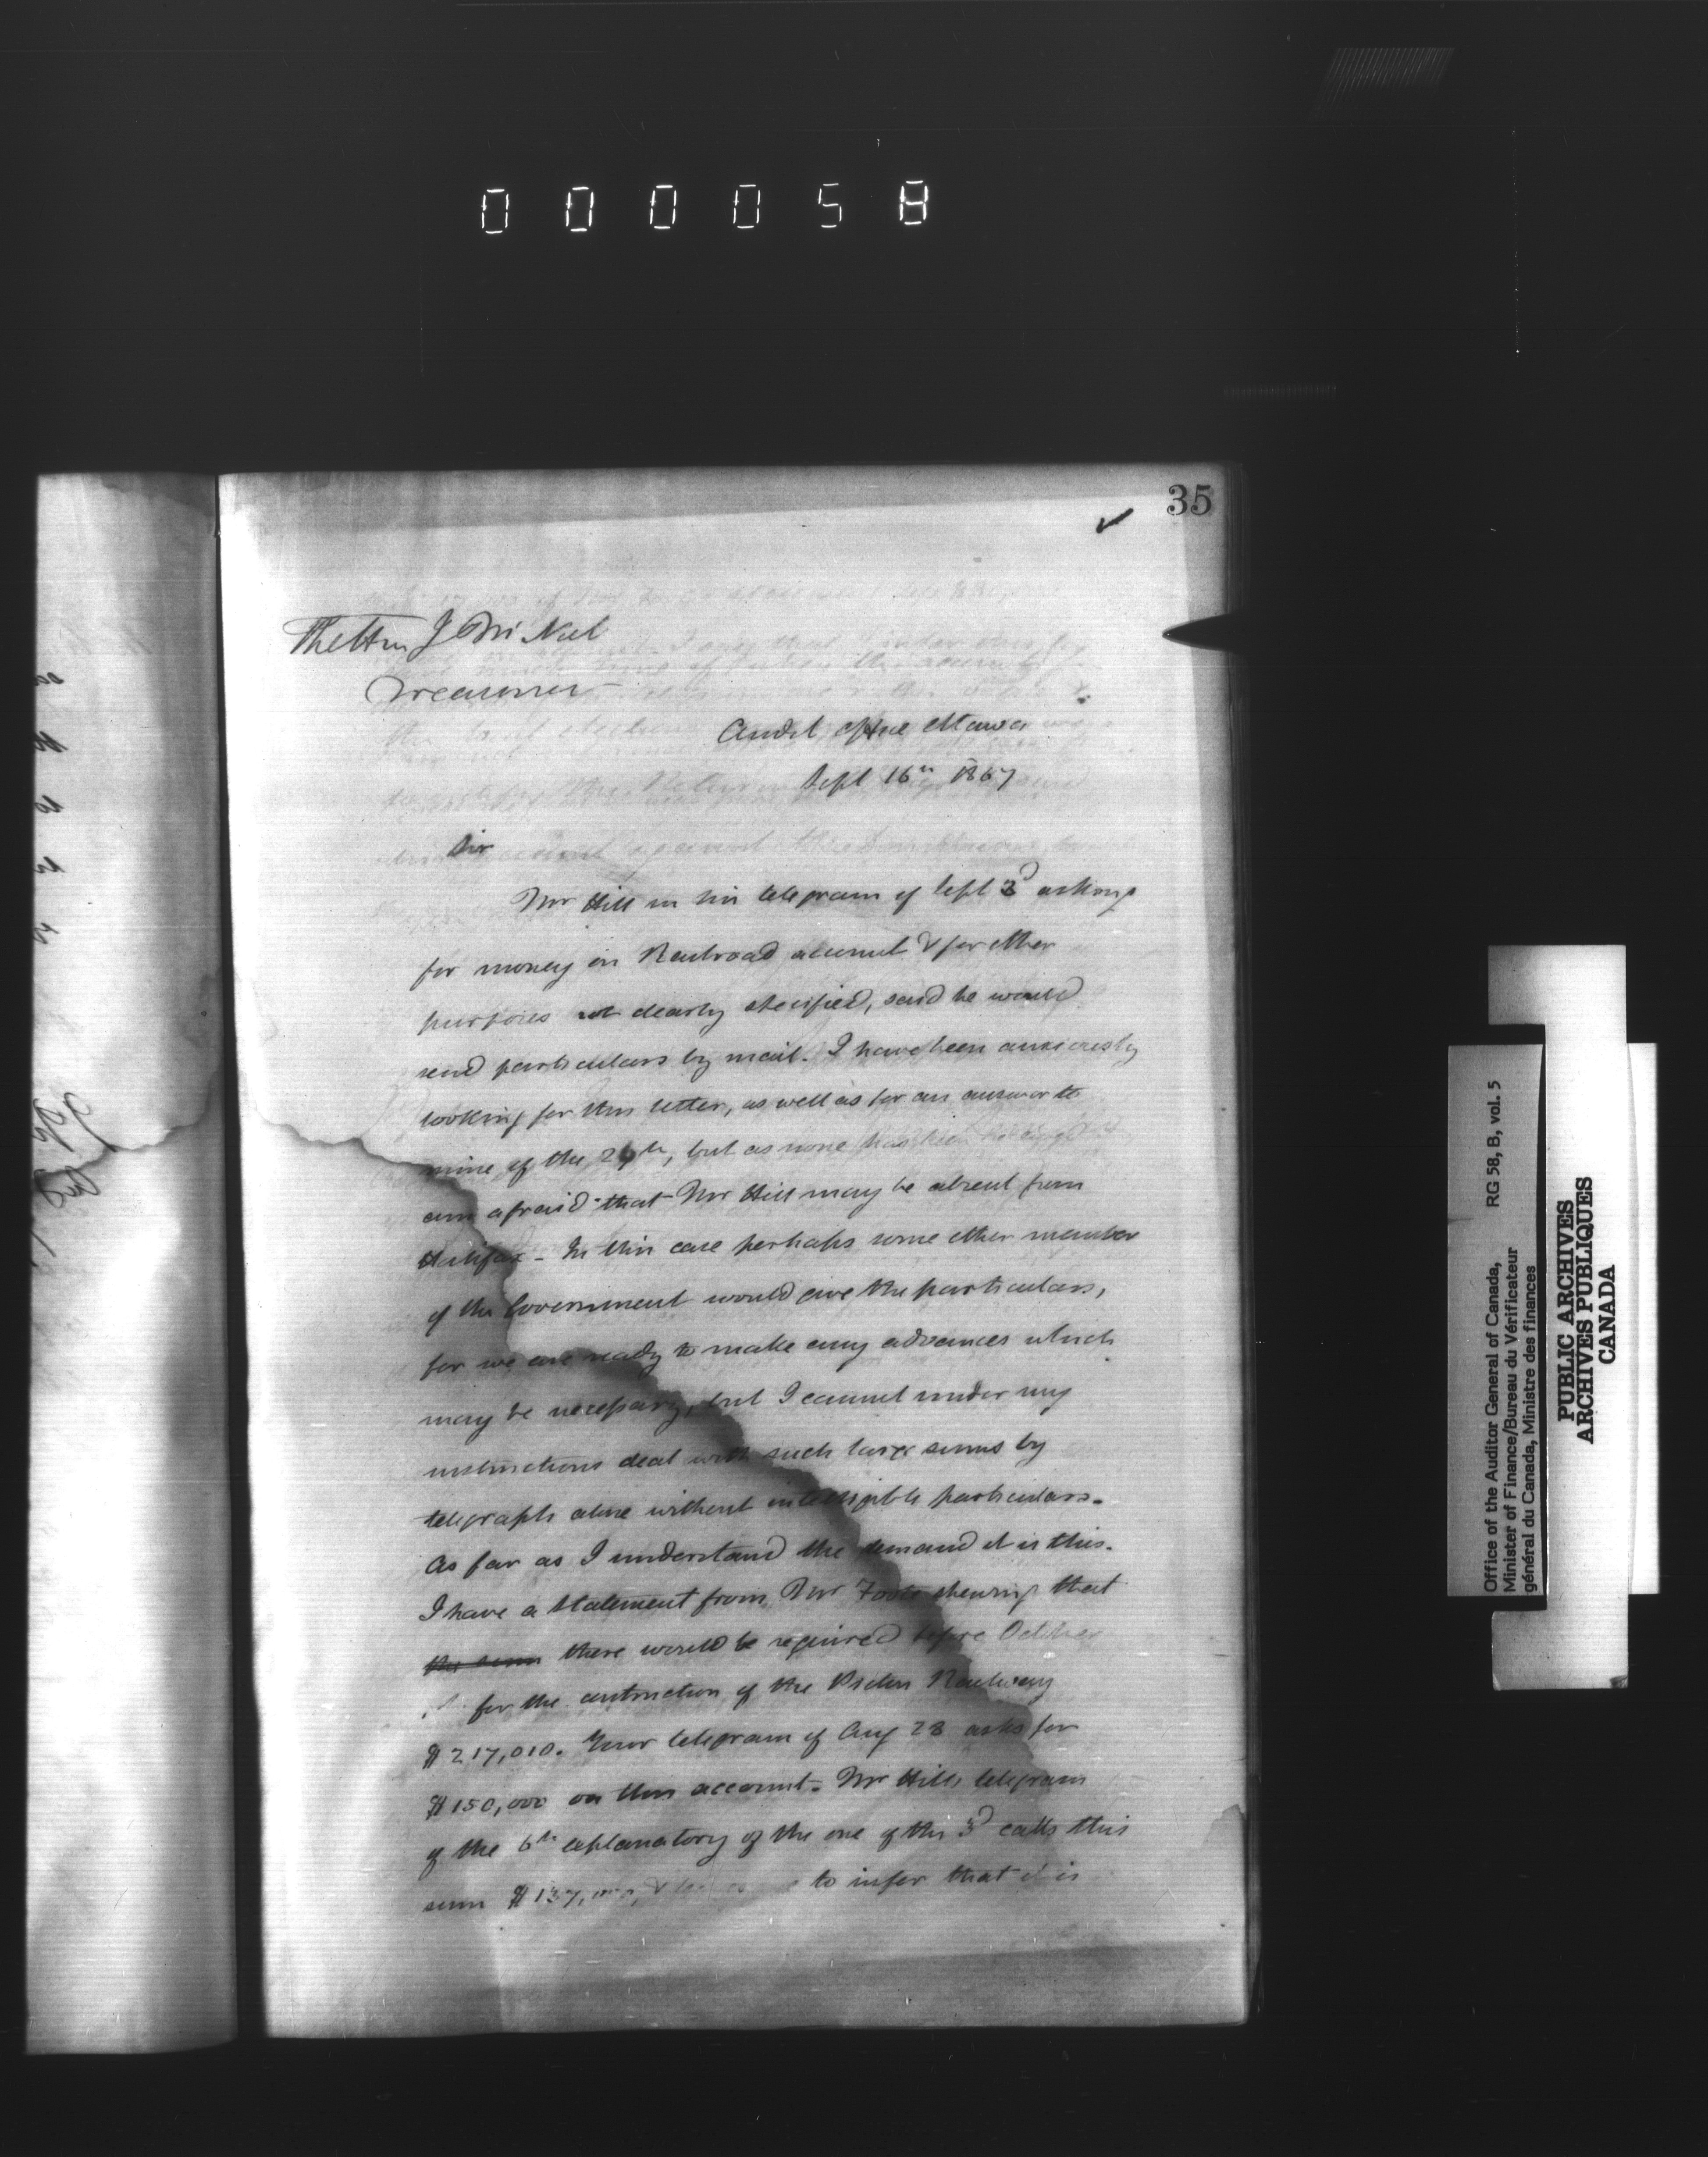 000058
35
The Hon J Mc Nab
Treasurer
Audit Office Ottawa
Sept 16th 1867
Sir
Mr Hill in his telegram of Sept 3d asking
for money on Railroad account & for other
purposes not clearly specified, said he would
send particulars by mail. I have been anxiously
looking for this letter, as well as for an answer to
mine of the 29th, but as none has been received I
am afraid that Mr Hill may be absent from
Halifax - In this case perhaps some other member
of the Government would give the particulars,
for we are ready to make any advances which
may be necessary, but I cannot under my
instructions deal with such large sums by
telegraph alone without intelligible particulars.
As far as I understand the demand it is this.
I have a statement from Mr Foote shewing that
the sum there would be required before October
for the contruction of the Pictou Railway
$217,010. Your telegram of Aug 28 asks for
$150,000 on this account. Mr Hills telegram
of the 6th explanatory of the one of the 3d calls this
sum $137,000, & to infer that it is
Office of the Auditor General of Canada, RG 58, B, vol. 5
Minister of Finance/Bureau du Vérificateur
général du Canada, Ministre des finances
PUBLIC ARCHIVES
ARCHIVES PUBLIQUES
CANADA